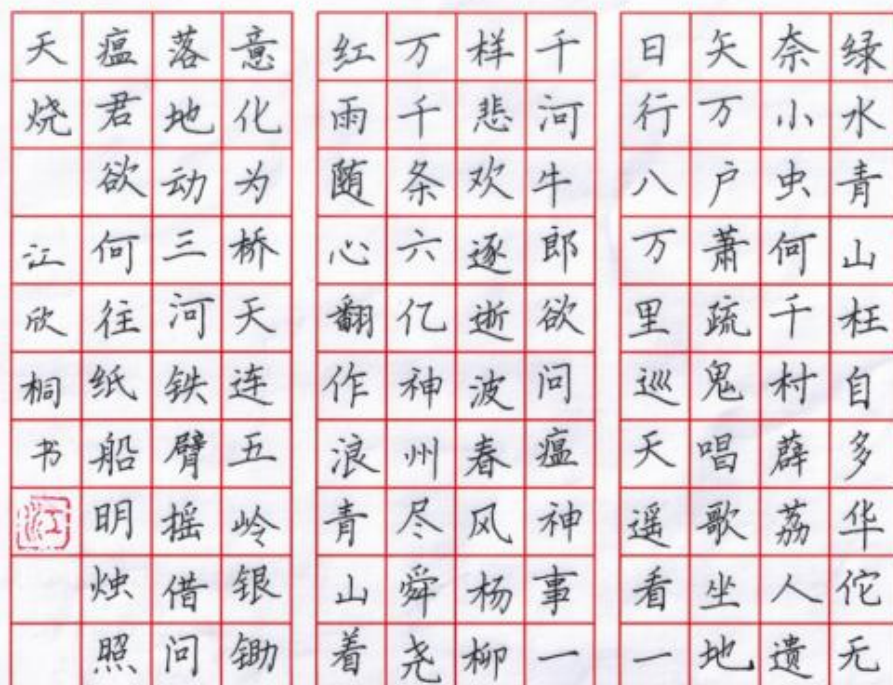 绿水青山枉自多华佗无
奈小虫何千村薜荔人遗
矢万户萧疏鬼唱歌坐地
日行八万里巡天遥看一
千河牛郎欲问瘟神事一
样悲欢逐逝波春风杨柳
万千条六亿神州尽舜尧
红雨随心翻作浪青山着
意化为桥天连五岭银锄
落地动三河铁臂摇借问
瘟君欲何往纸船明烛照
天烧 江欣桐书